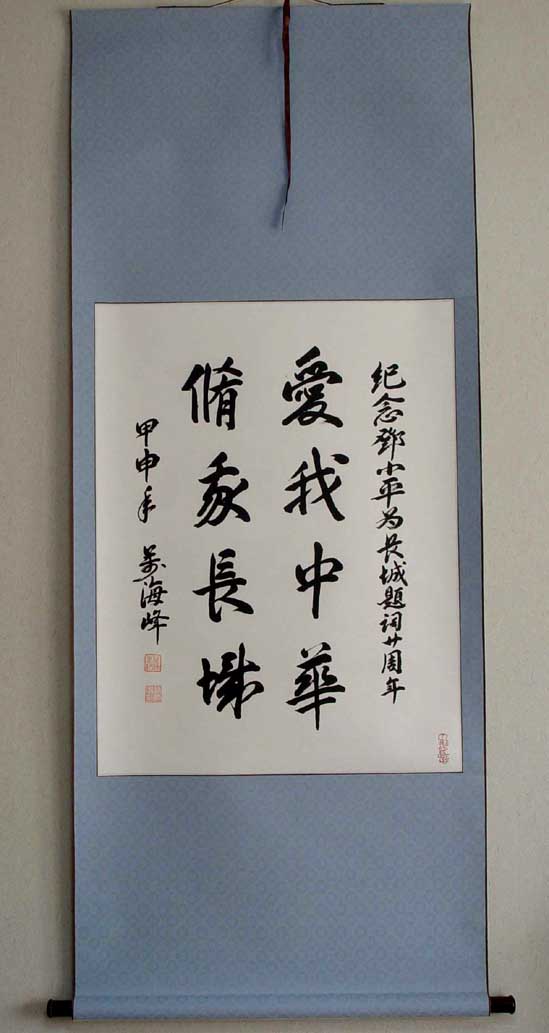 纪念鄧小平为长城题词廿周年
愛我中華
脩我長城
甲申年 萬海峰